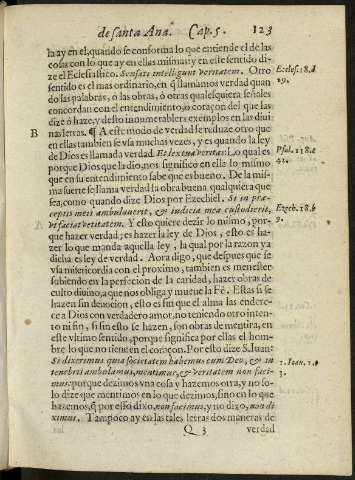 de santa Ana. Cap. 5. 123
la ay en el, quando se conforma lo que entiende el de las
cosas con lo que ay en ellas mismas: y en este sentido di-
ze el Eclesiastico. Sensati intelligunt veritatem. Otro
sentido es el mas ordinario, en q̃ llamamos verdad quan
do las palabras, ó las obras, ó otras qualesquiera señales
concordan con el entendimiento, ó coraçon del que las
dize ó haze, y desto innumerables exemplos en las diui
nas letras. ¶ A este modo de verdad se reduze otro que
en ellas tambien se vía muchas vezes, y es quando la ley
de Dios es llamada verdad. Et lex tua veritas: Lo qual es
porque Dios que la dio, nos significó en ella lo mismo
que en su entendimiento sabe que es bueno. De la mis-
ma suerte se llama verdad la obra buena qualquiera que
sea, como quando dize Dios por Ezechiel. Si in præ-
ceptis meis ambulauerit, & iudicia mea custodierit,
vt faciat veritatem. Y esto quiere dezir lo mismo, por-
que hazer verdad; es hazer la ley de Dios, esto es ha-
zer lo que manda aquella ley, la qual por la razon ya
dicha es ley de verdad. Aora digo, que despues que se
vsa misericordia con el proximo, tambien es menester
subiendo en la perfecion de la caridad, hazer obras de
culto diuino, a que nos obliga y mueue la Fè. Estas si se
hazen sin deuocion, esto es sin que el alma las endere-
ce a Dios con verdadero amor, no teniendo otro inten-
to ni fin, si sin esto se hazen, son obras de mentira, en
este vltimo sentido, porque significa por ellas el hom-
bre lo que no tiene en el coraçon. Por esto dize S. Iuan:
Si dixerimus quia societatem habemus cum Deo, & in
tenebris ambulamus, mentimur, & veritatem non faci-
mus: porque dezimos vna cosa y hazemos otra, y no so-
lo dize que mentimos en lo que dezimos, sino en lo que
hazemos, q̃ por esso dixo, non facimus, y no dixo, non di
ximus. Tampoco ay en las tales letras dos maneras de
Q 3 verdad
B
Eccles. 18.d
29.
Psal. 118.d
42.
Ezech. 18.b
9.
1. Ioan. 1.
3.